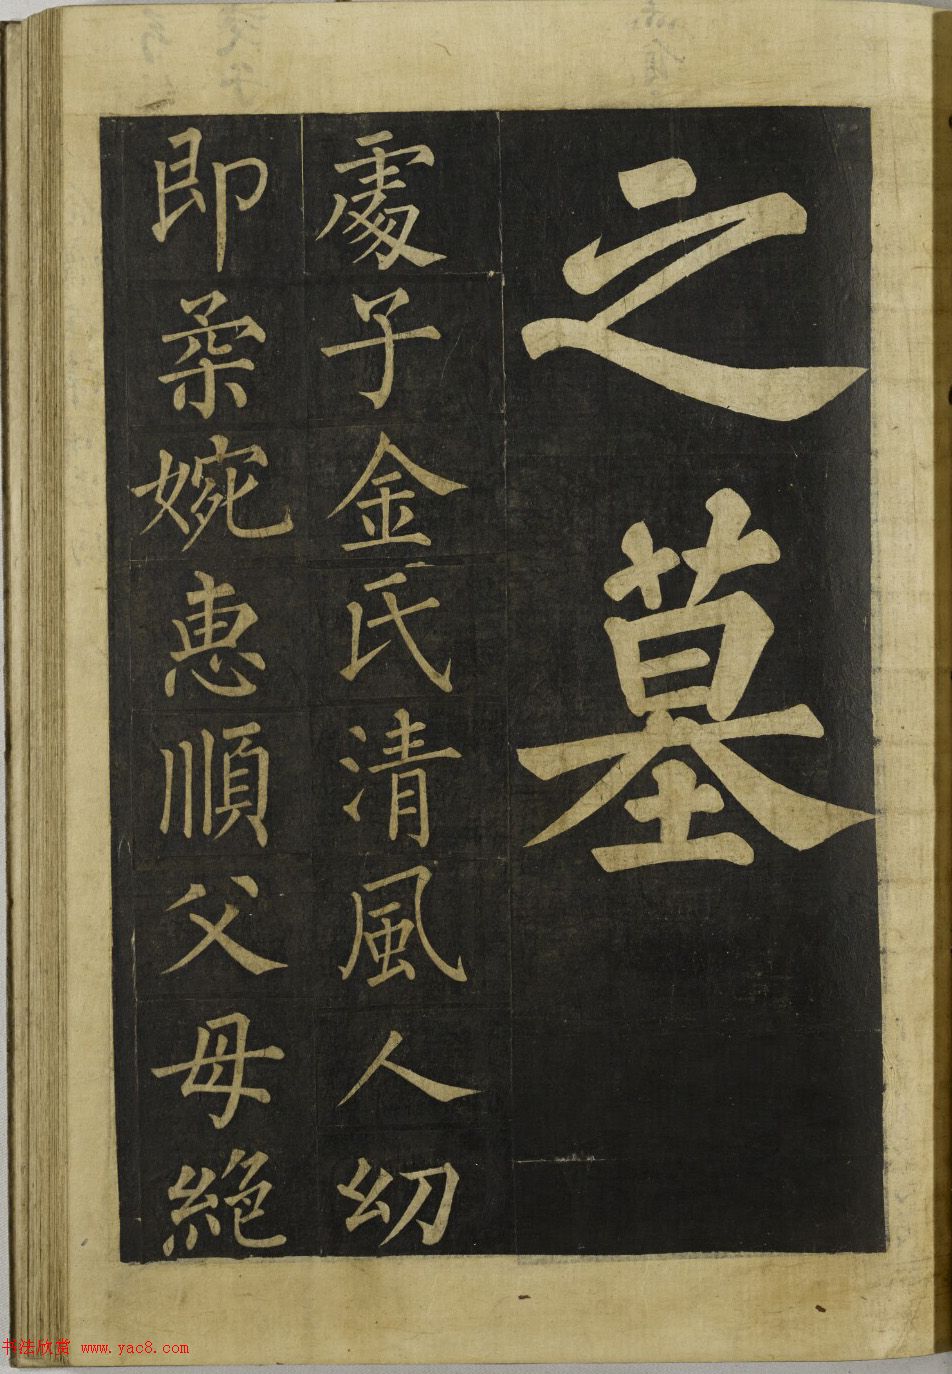 之墓
處子金氏清風人幼
即柔婉惠順父母絶
书法欣赏 www.yac8.com